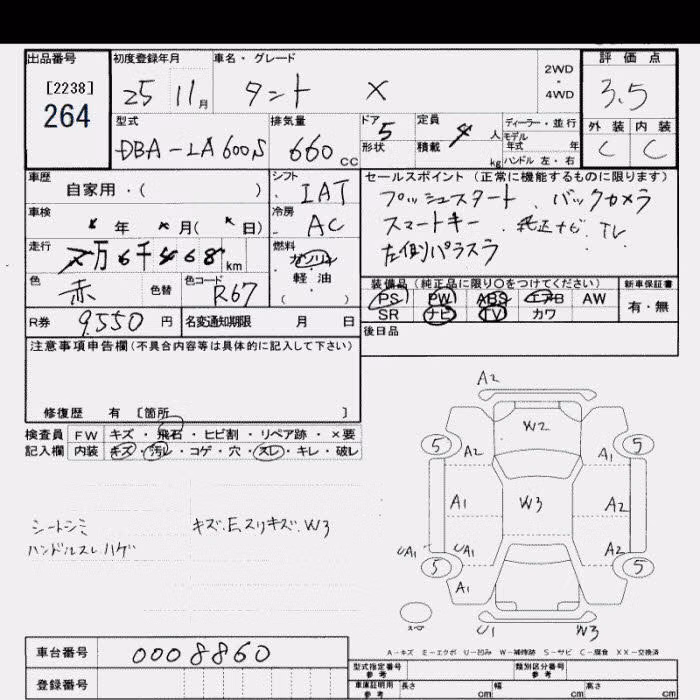 出品番号 初度登録年月 車名・グレード 2WD・4WD 評価点
[2238]
264
25 11月 タント X 3.5
型式 排気量 ドア 形状 定員 積載 ディーラー・並行
モデル年式 年
ハンドル 左・右
外装 内装
DBA-LA600S 660cc 5 4人 kg C C
車歴 自家用・( ) シフト IAT
セールスポイント(正常に機能するものに限ります)
プッシュスタート、バックカメラ
スマートキー、純正ナビ、TV
左側パラスラ
車検 年 月( 日) 冷房 AC
走行 万6千468km 燃料 ガソリン 軽油 ( )
色 赤 色替 色コード R67
装備品(純正品に限り○をつけてください) 新車保証書
PS PW ABS エアB AW 有・無
SR ナビ TV カワ
R券 9,550円 名変通知期限 月 日
後日品
注意事項申告欄(不具合内容等は具体的に記入して下さい)
修復歴 有 [箇所 ]
検査員 FW キズ・飛石・ヒビ割・リペア跡・×要
記入欄 内装 キズ・汚レ・コゲ・穴・スレ・キレ・破レ
シートシミ キズ.E.スリキズ.W3
ハンドルスレハゲ
A2
W2
5 A2 A1 5
A1 W3 A2
UA1 UA1 A2
5 5
A1
スペア U1 W3
A-キズ E-エクボ U-凹み W-補修跡 S-サビ C-腐食 XX-交換済
車台番号 0008860
型式指定番号 参考 類別区分番号 参考
登録番号
車庫証明用 参考 長さ cm 幅 cm 高さ cm